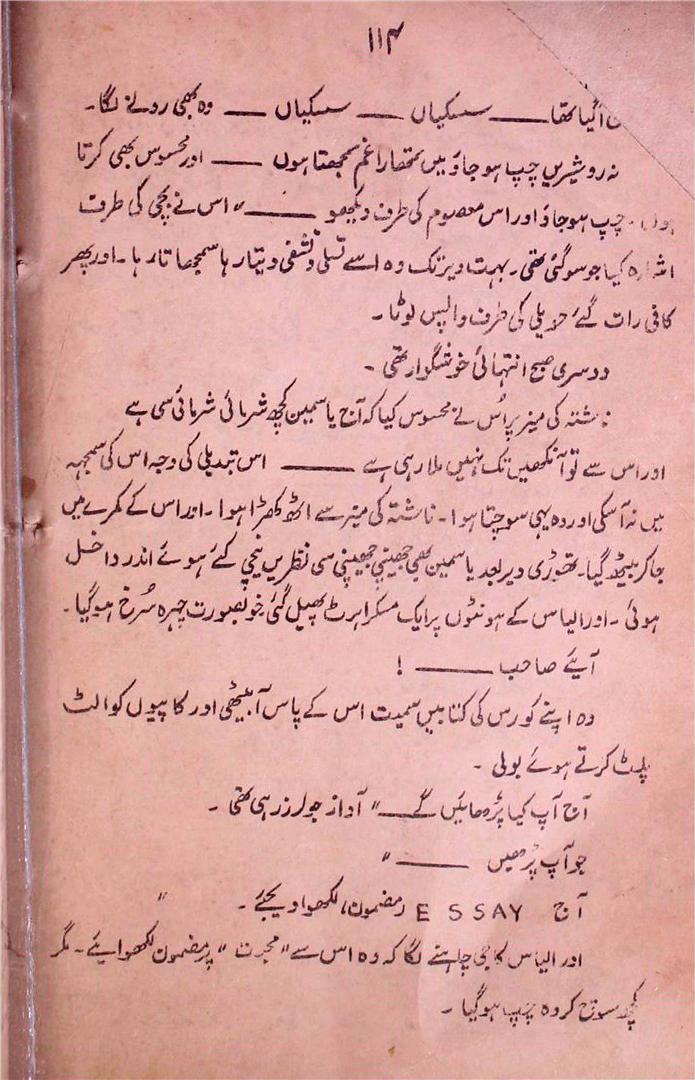 ۱۱۴
آگیا تھا ــــ سسکیاں ــــ سسکیاں ــــ وہ بھی رونے لگا۔
نہ رو شیریں چپ ہو جاؤ میں تمھارا غم سمجھتا ہوں ــــ اور محسوس بھی کرتا
ہوں۔ چپ ہو جاؤ اور اس معصوم کی طرف دیکھو ــــ" اس نے بچی کی طرف
اشارہ کیا جو سوگئی تھی۔ بہت دیر تک وہ اسے تسلی و تشفی دیتا رہا سمجھاتا رہا۔ اور پھر
کافی رات گئے حویلی کی طرف واپس لوٹا۔
دوسری صبح انتہائی خوشگوار تھی۔
ناشتہ کی میز پر اُس نے محسوس کیا کہ آج یاسمین کچھ شرمائی شرمائی سی ہے
اور اس سے تو آنکھیں تک نہیں ملا رہی ہے ــــ اس تبدیلی کی وجہ اس کی سمجھ
میں نہ آسکی اور وہ یہی سوچتا ہوا۔ ناشتہ کی میز سے اٹھ کھڑا ہوا۔ اور اس کے کمرے میں
جا کر بیٹھ گیا۔ تھوڑی دیر بعد یاسمین بھی جھینپی جھینپی سی نظریں نیچی کئے ہوئے اندر داخل
ہوئی۔ اور الیاس کے ہونٹوں پر ایک مسکراہٹ پھیل گئی خوبصورت چہرہ سُرخ ہوگیا۔
آیئے صاحب ــــ !
وہ اپنے کورس کی کتابیں سمیت اس کے پاس آبیٹھی اور کاپیوں کو الٹ
پلٹ کرتے ہوئے بولی۔
آج آپ کیا پڑھائیں گے ــــ" آواز جو لرز رہی تھی۔
جو آپ پڑھیں ــــ"
آج ESSAY (مضمون) لکھوا دیجئے۔ "
اور الیاس کا جی چاہنے لگا کہ وہ اس سے "محبت" پر مضمون لکھوائے۔ مگر
کچھ سوچ کر وہ چپ ہوگیا۔